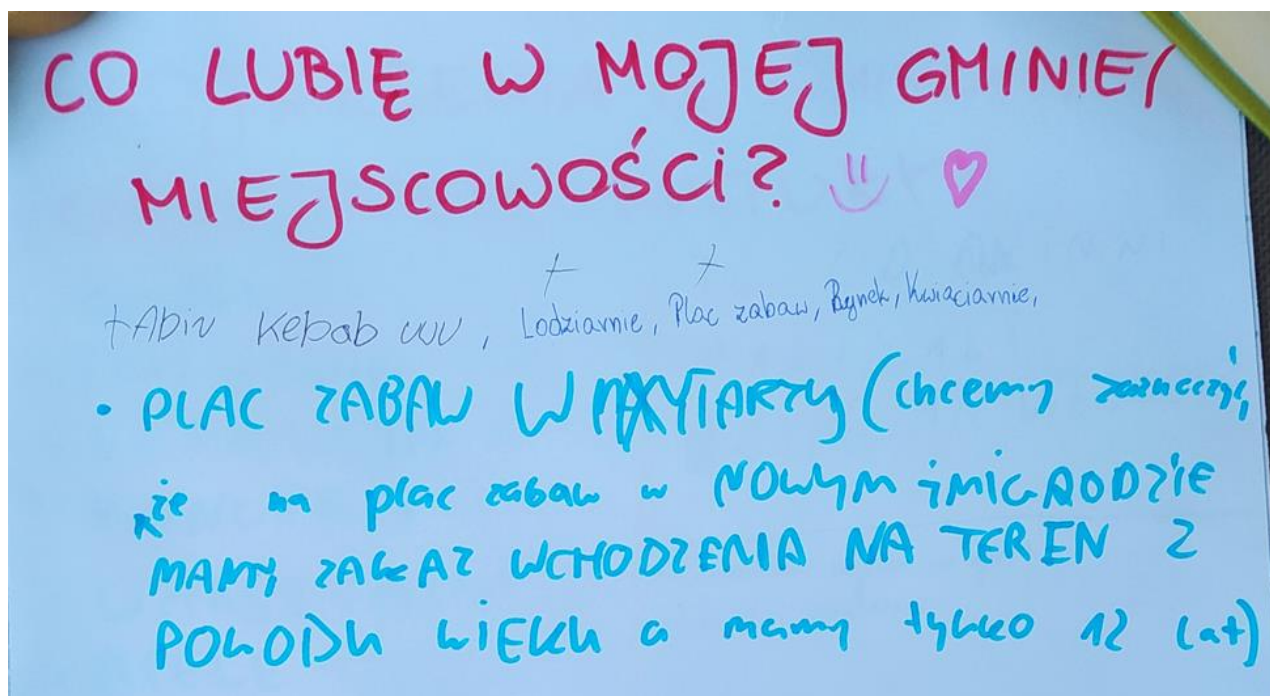 CO LUBIĘ W MOJEJ GMINIE/
MIEJSCOWOŚCI?
+ +
+Abiv Kebab uw, Lodziarnie, Plac zabaw, Rynek, Kwiaciarnie,
• PLAC ZABAW W (chcemy zaznaczyć,
że na plac zabaw w NOWYM iMIGRODZIE
MAMY ZAKAZ WCHODZENIA NA TEREN Z
POWODU WIEKU a mamy tylko 12 lat)